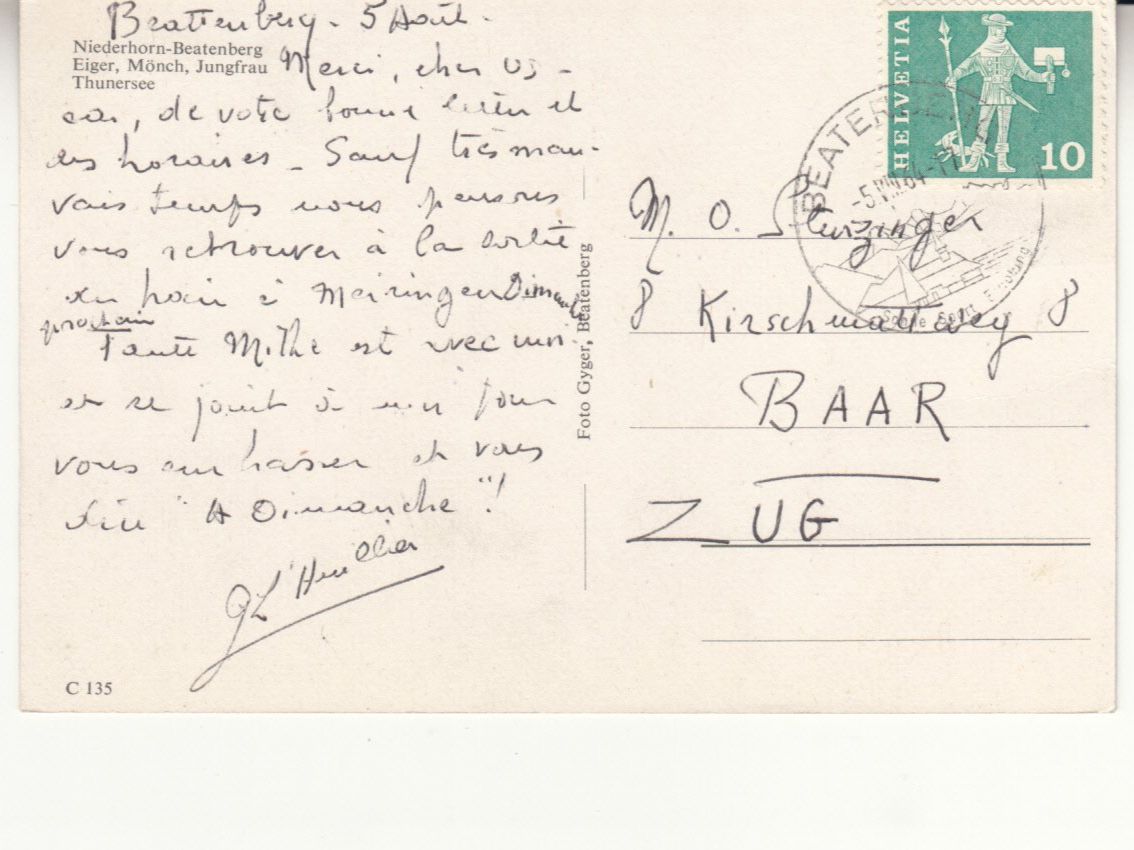 Beattenberg - 5 Août -
Niederhorn-Beatenberg
Eiger, Mönch, Jungfrau
Thunersee
Merci, cher Os-
car, de votre bonne lettre et
des horaires - Sauf très mau-
vais temps nous pensons
vous retrouver à la sortie
du train à Meiringen Dimanche
prochain
Tante Mithé est avec moi
et se joint à moi pour
vous embrasser et vous
dire "A Dimanche"!
G L'Huillier
C 135
Foto Gyger, Beatenberg
HELVETIA
10
BEATENBERG
-5.VIII.64-17
Sonne Sport Erholung
M. O. Sturzinger
8 Kirschmattweg 8
BAAR
ZUG